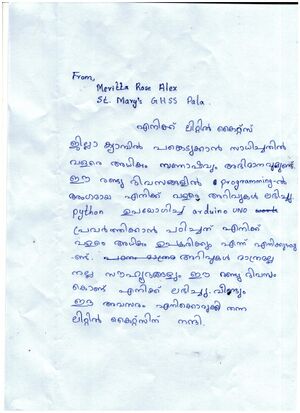 From,
Merilla Rose Alex
St. Mary's GHSS Pala.
എനിക്ക് ലിറ്റിൽ കൈറ്റ്സ്
ജില്ലാ ക്യാമ്പിൽ പങ്കെടുക്കാൻ സാധിച്ചതിൽ
വളരെ അധികം സന്തോഷവും അഭിമാനവുമുണ്ട്.
ഈ രണ്ടു ദിവസങ്ങളിൽ programming-ൽ
അഗാധമായ എനിക്ക് വളരെ അറിവുകൾ ലഭിച്ചു.
python ഉപയോഗിച്ച് arduino UNO
പ്രവർത്തിക്കാൻ പഠിച്ചത് എനിക്ക്
വളരെ അധികം ഉപകരിക്കും എന്ന് എനിക്കുറപ്പു
ണ്ട്. അറിവുകൾ മാത്രമല്ല
നല്ല സൗഹൃദങ്ങളും ഈ രണ്ടു ദിവസം
കൊണ്ട് എനിക്ക് ലഭിച്ചു. വീണ്ടും
ഈ അവസരം എനിക്കൊരുക്കി തന്ന
ലിറ്റിൽ കൈറ്റ്സിന് നന്ദി.